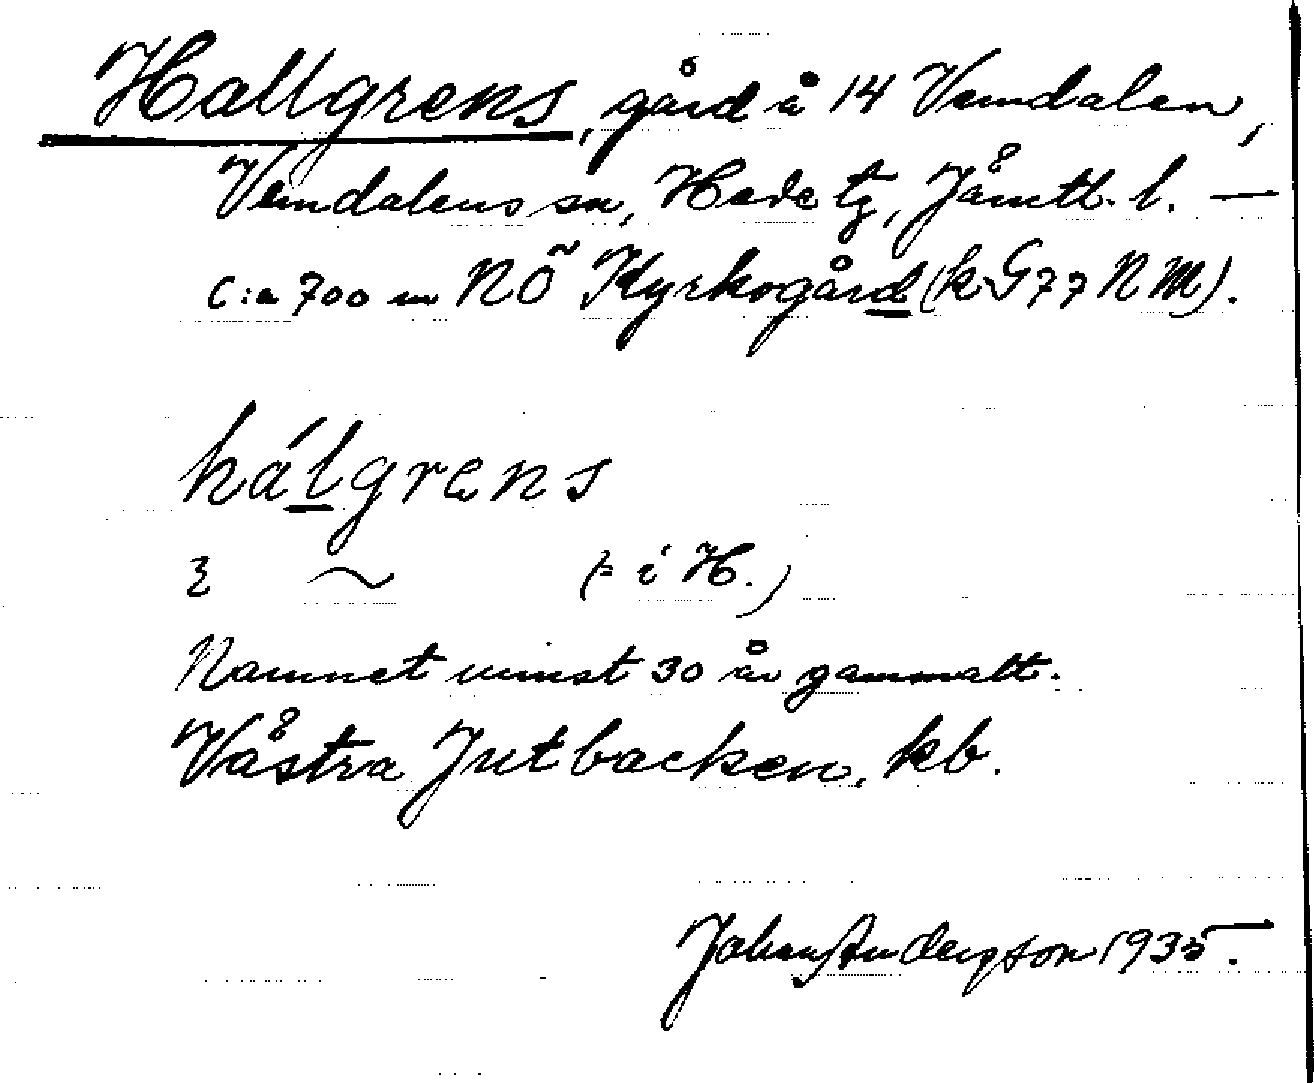 Hallgrens, gård å 14 Vemdalen,
Vemdalens sn, Hede tg, Jämtl. l. —
c:a 700 m NÖ Kyrkogård (k. G77 NM).
hálgrens
~ (i H.)
Namnet minst 30 år gammalt.
Västra Jutbacken, kb.
Johan Anderson 1935.